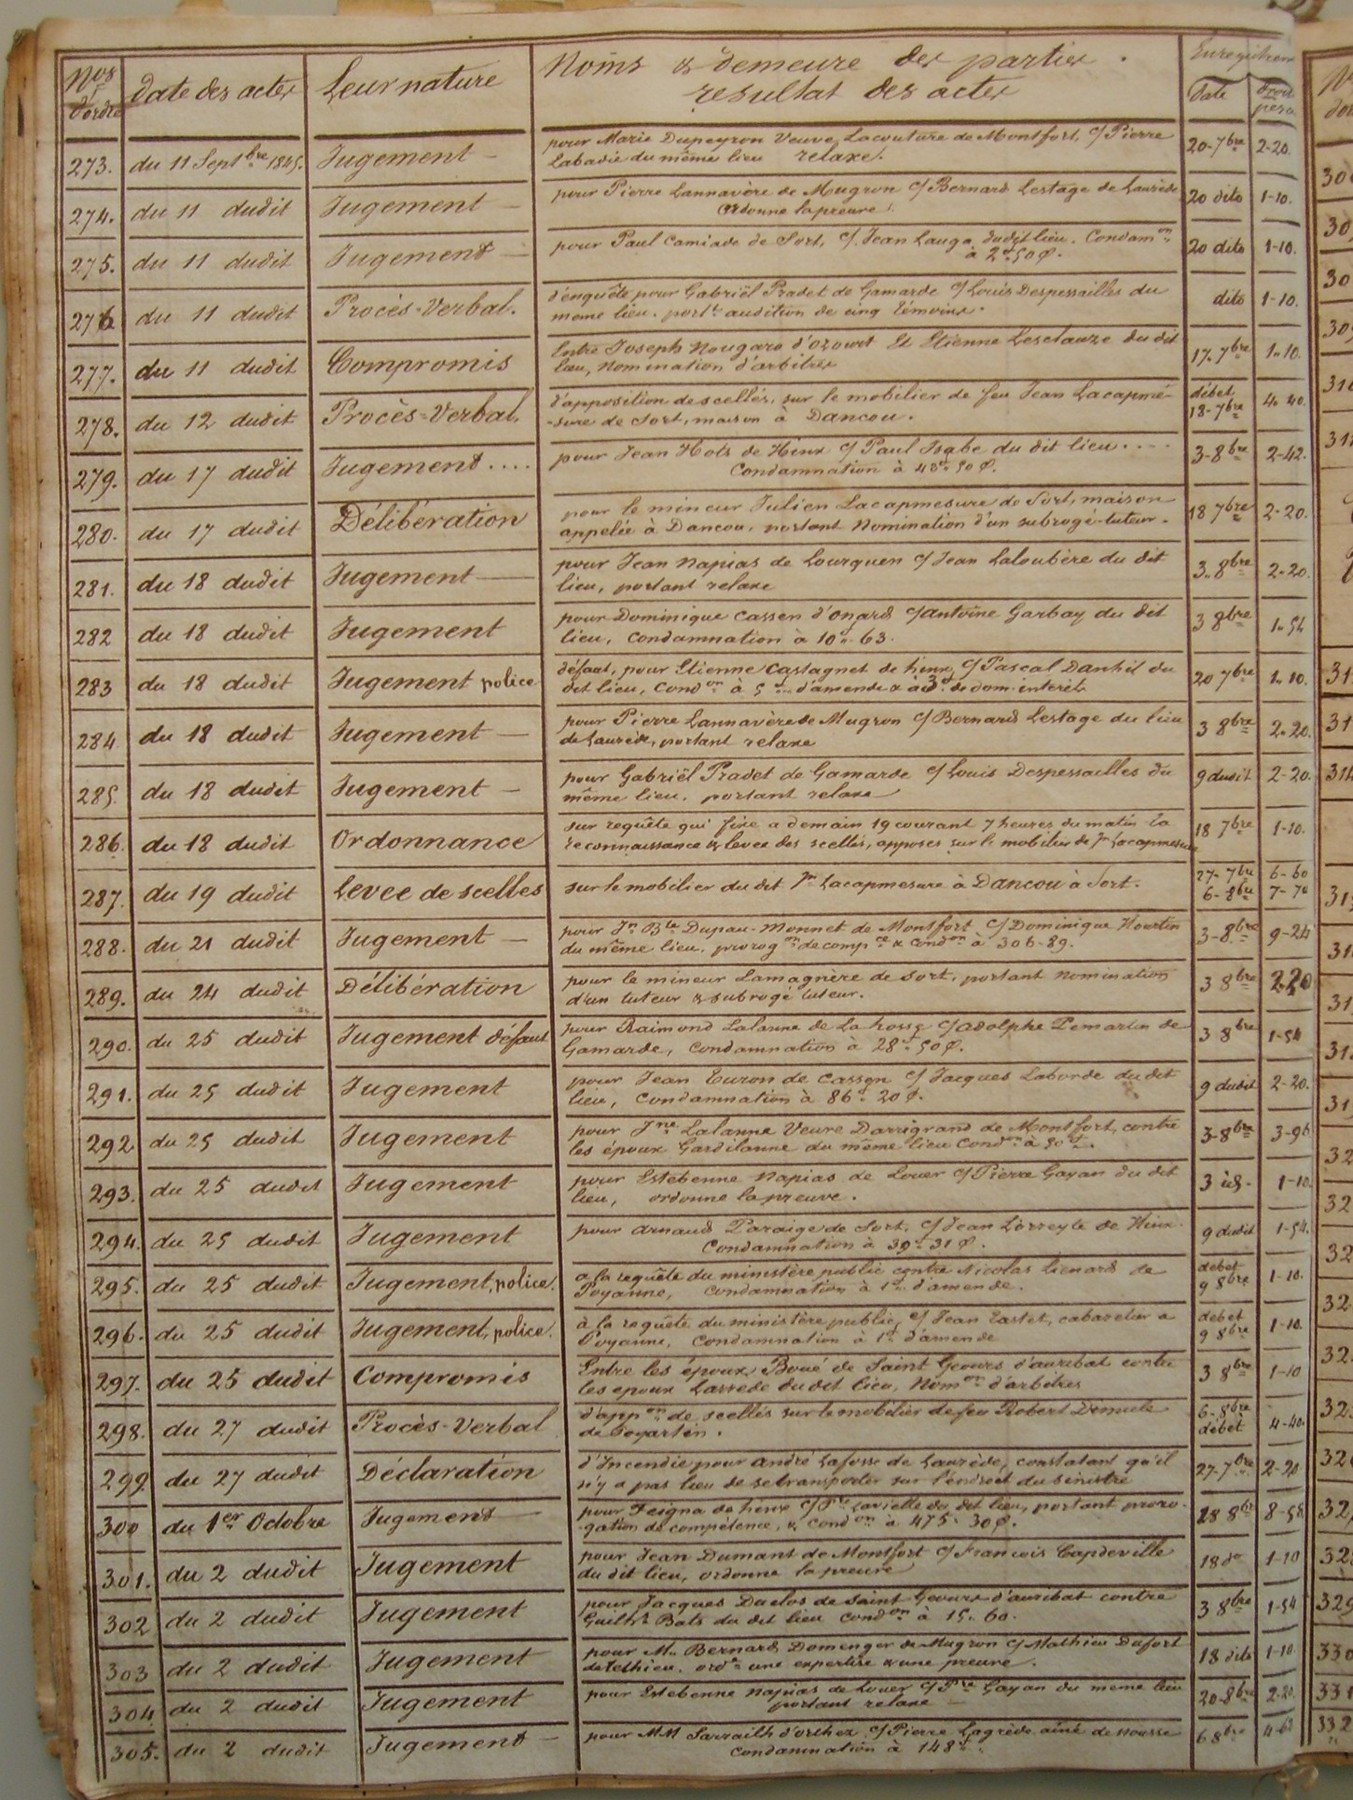 Nos d'ordre | Date des actes | Leur nature | Noms & demeure des parties. | Enregistrem
résultat des actes | Date | Droit perçu
273. | du 11 Sept bre 1845. | Jugement – | pour Marie Dupeyron Veuve Lacouture de Montfort, c/ Pierre | 20-7bre | 2-20.
Labadie du même lieu relaxe.
274. | du 11 dudit | Jugement – | pour Pierre Lannavère de Mugron c/ Bernard Lestage de Laurède | 20 dito | 1-10.
Ordonne la preuve.
275. | du 11 dudit | Jugement – | pour Paul Camiade de Sort, c/ Jean Lauga dudit lieu. Condamon | 20 dito | 1-10.
à 2f 50 c.
276 | du 11 dudit | Procès-Verbal. | d'enquête pour Gabriël Pradet de Gamarde c/ Louis Despessailles du | dito | 1-10.
meme lieu. portt audition de cinq témoins.
277. | du 11 dudit | Compromis | Entre Joseph Nougaro d'Ozourt Et Etienne Lesclauze du dit | 17-7bre | 1-10.
lieu, nomination d'arbitres
278. | du 12 dudit | Procès-Verbal. | d'apposition de scellés, sur le mobilier de feu Jean Lacapme- | débet 18-7bre | 4-40.
-sure de Sort, maison à Dancou.
279. | du 17 dudit | Jugement.... | pour Jean Hots de Hinx c/ Paul Isabe du dit lieu.... | 3-8bre | 2-42.
Condamnation à 43f 50 c.
280. | du 17 dudit | Délibération | pour le mineur Julien Lacapmesure de Sort, maison | 18 7bre | 2-20.
appelée à Dancou, portant nomination d'un subrogé-tuteur.
281. | du 18 dudit | Jugement – | pour Jean Napias de Lourquen c/ Jean Laloubère du dit | 3-8bre | 2-20.
lieu, portant relaxe
282 | du 18 dudit | Jugement | pour Dominique Cassen d'Onard c/ Antoine Garbay du dit | 3 8bre | 1-54
lieu, condamnation à 10f 63.
283 | du 18 dudit | Jugement police | défaut, pour Etienne Castagnet de hinx, c/ Pascal Danhil du | 20 7bre | 1-10.
dit lieu, condon à 5f d'amende & à 3f de dom. interêts
284 | du 18 dudit | Jugement – | pour Pierre Lannavère de Mugron c/ Bernard Lestage du lieu | 3 8bre | 2-20.
de Laurède, portant relaxe
285. | du 18 dudit | Jugement – | pour Gabriël Pradet de Gamarde c/ Louis Despessailles du | 9 dudit | 2-20.
même lieu. portant relaxe
286. | du 18 dudit | Ordonnance | sur requête qui fixe a demain 19 courant 7 heures du matin la | 18 7bre | 1-10.
reconnaissance & levee des scellés, apposés sur le mobilier de Jn Lacapmesure
287. | du 19 dudit | Levee de scelles | sur le mobilier du dit Jn Lacapmesure à Dancou à Sort. | 27-7bre 6-8bre | 6-60 7-70
288. | du 21 dudit | Jugement – | pour Jn Bte Dupau-Monnet de Montfort c/ Dominique Hourtin | 3-8bre | 9-24
du même lieu, prorogon de compce & condon à 306-89.
289. | du 24 dudit | Délibération | pour le mineur Lamagnère de Sort, portant nomination | 3 8bre | 2-20
d'un tuteur & subrogé tuteur.
290. | du 25 dudit | Jugement défaut | pour Raimond Lalanne de Lahosse c/ Adolphe Pemartin de | 3-8bre | 1-54
Gamarde, condamnation à 28f 50 c.
291. | du 25 dudit | Jugement | pour Jean Euron de Cassen c/ Jacques Laborde du dit | 9 dudit | 2-20.
lieu, condamnation à 86f 20 c.
292 | du 25 dudit | Jugement | pour Jne Lalanne Veuve Darrigrand de Montfort, contre | 3-8bre | 3-96
les époux Gardilanne du même lieu condon à 50f.
293. | du 25 dudit | Jugement | pour Estebenne Napias de Louer c/ Pierre Gayan du dit | 3 id. | 1-10.
lieu, ordonne la preuve.
294. | du 25 dudit | Jugement | pour Arnaud Paraige de Sort, c/ Jean Lorreyte de Hinx. | 9 dudit | 1-54.
Condamnation à 39f 31 c.
295. | du 25 dudit | Jugement, police. | a la requête du ministère public contre Nicolas Lienard de | débet 9 8bre | 1-10.
Poyanne, condamnation à 1f d'amende.
296. | du 25 dudit | Jugement, police. | à la requête du ministère public, c/ Jean Tastet, cabaretier a | debet 9 8bre | 1-10.
Poyanne, condamnation à 1f d'amende
297. | du 25 dudit | Compromis | Entre les époux Boué de Saint Geours d'auribat contre | 3 8bre | 1-10
les epoux Lassede du dit lieu, Nomon d'arbitres
298. | du 27 dudit | Procès-Verbal | d'appon de scellés sur le mobilier de feu Robert | 6-8bre debet | 4-40.
de Poyartin.
299. | du 27 dudit | Déclaration | d'Incendie pour André Lafosse de Laurède, constatant qu'il | 27-7bre | 2-20
n'y a pas lieu de se transporter sur l'endroit du sinistre
300 | du 1er Octobre | Jugement – | pour Feigna de hinx c/ Pre Lavielle du dit lieu, portant proro- | 28 8bre | 8-58
-gation de compétence, & condon à 475f 30 c.
301. | du 2 dudit | Jugement | pour Jean Dumant de Montfort c/ Francois Capdeville | 18 do | 1-10
du dit lieu, ordonne la preuve
302 | du 2 dudit | Jugement | pour Jacques Duclos de Saint Geours d'auribat contre | 3 8bre | 1-54
Guilhe Bats du dit lieu condon à 15-60.
303 | du 2 dudit | Jugement | pour Me Bernard Domenger de Mugron c/ Mathieu Dufort | 18 dito | 1-10.
de Tethieu. orde une expertise & une preuve.
304 | du 2 dudit | Jugement | pour Estebenne Napias de Louer c/ Pre Gayan du meme lieu | 20-8bre | 2-20.
portant relaxe –
305. | du 2 dudit | Jugement – | pour MM Sarrailh d'orthez c/ Pierre Lagrède ainé de nousse | 6 8bre | 4-62
condamnation à 148f.